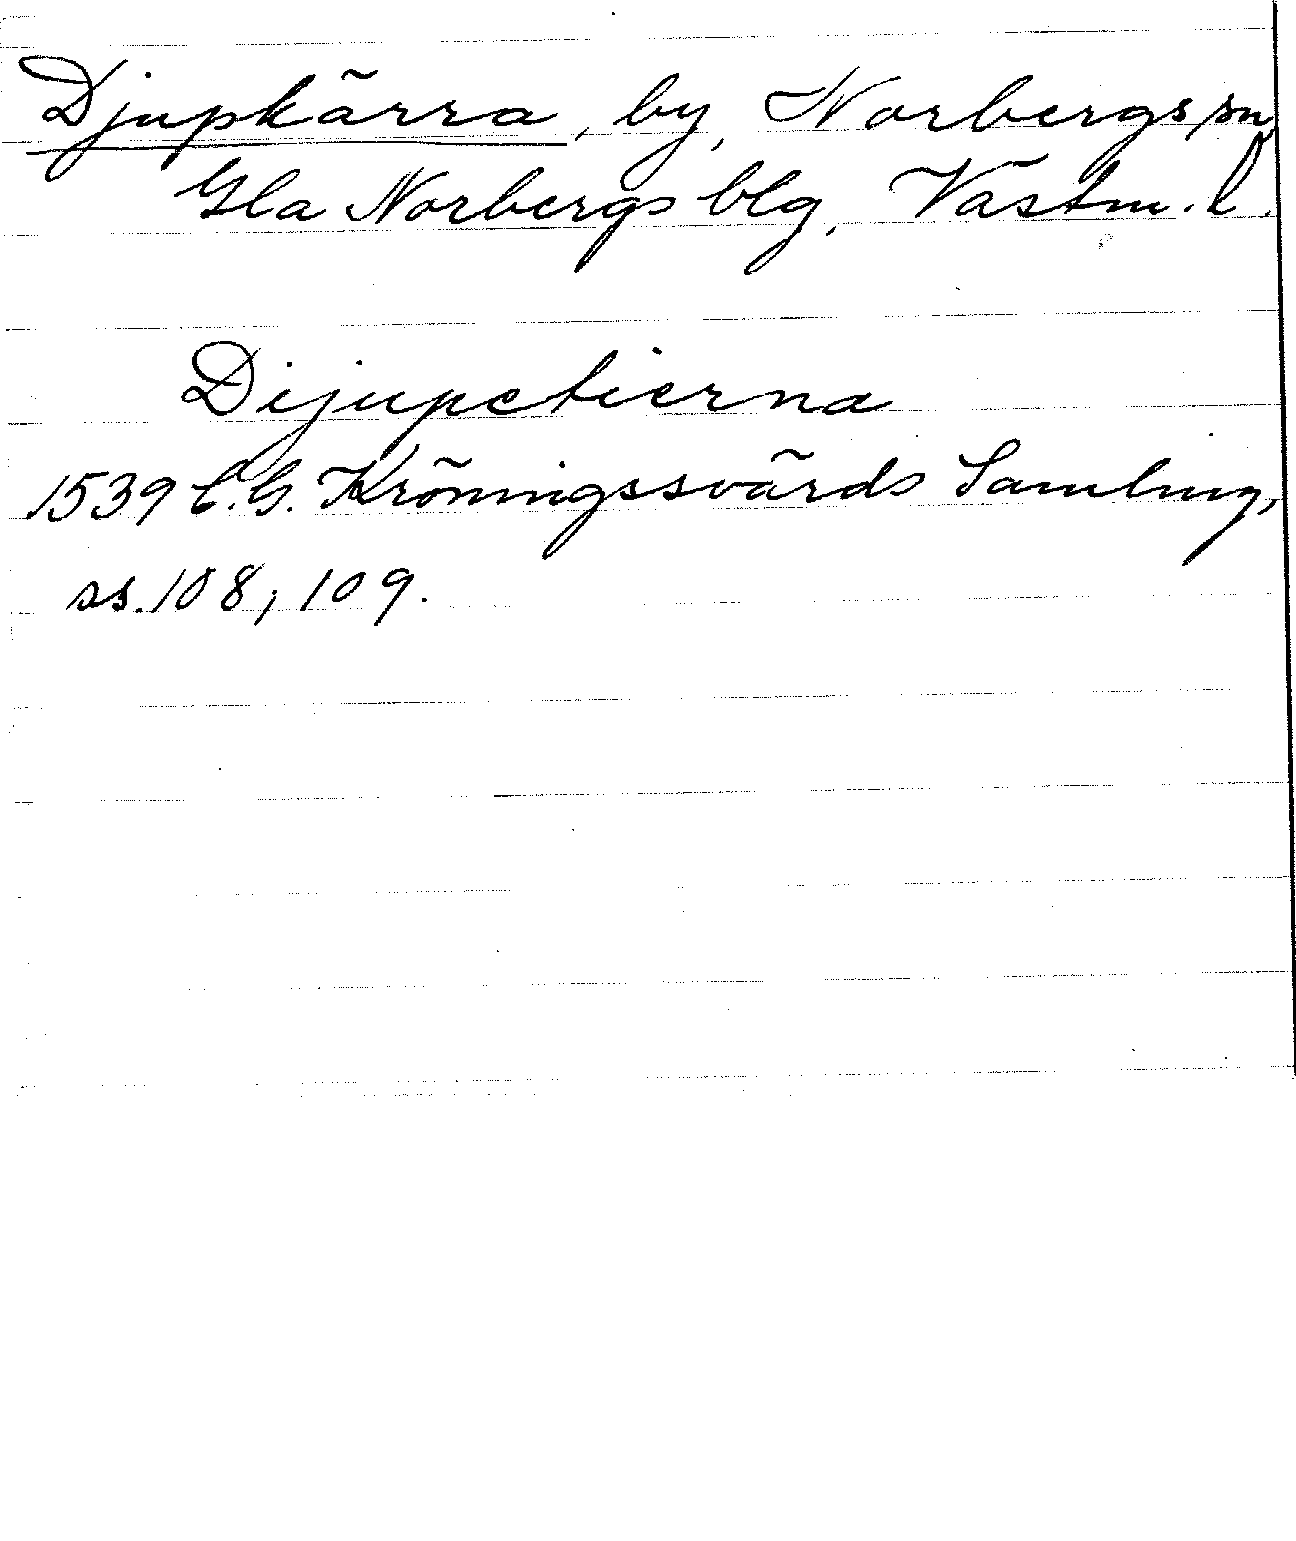 Djupkärra, by, Norbergs sn,
Gla Norbergs blg, Västm. l.
Dijupctierna
1539 C.G. Kröningssvärds Samling,
ss. 108, 109.